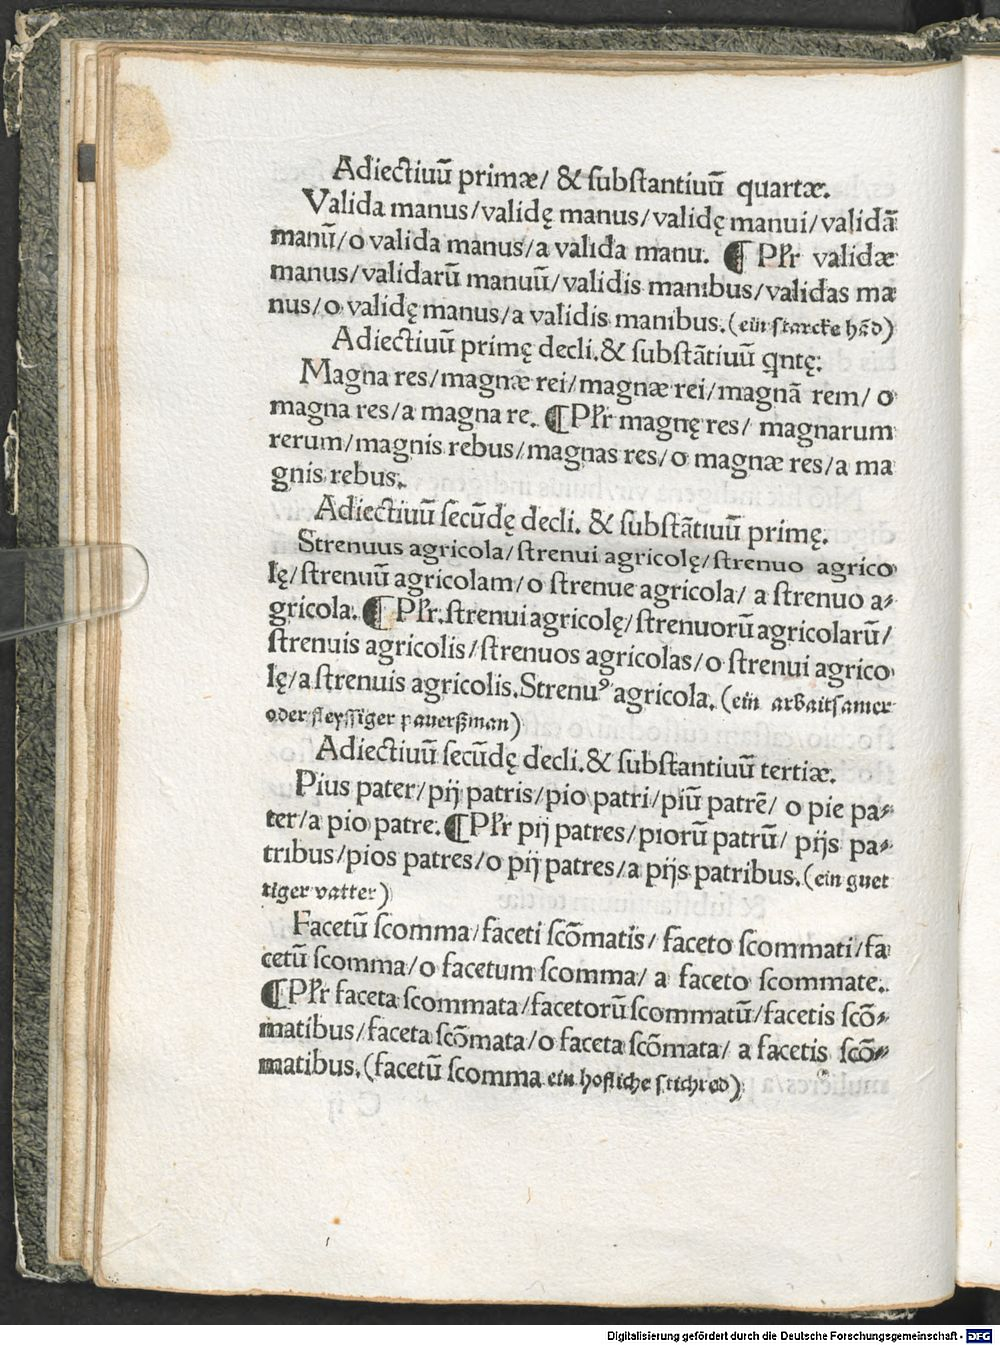 Adiectiuū primæ/ & ſubſtantiuū quartæ.
Valida manus/validę manus/validę manui/validā
manū/o valida manus/a valida manu. ¶ Pl̄r validæ
manus/validarū manuū/validis manibus/validas ma
nus/o validę manus/a validis manibus.(ein ſtarcke hād)
Adiectiuū primę decli.& ſubſtātiuū qntę:
Magna res/magnæ rei/magnæ rei/magnā rem/ o
magna res/a magna re. ¶Pl̄r magnę res/ magnarum
rerum/magnis rebus/magnas res/o magnæ res/a ma
gnis rebus.
Adiectiuū ſecūdę decli. & ſubſtātiuū primę.
Strenuus agricola/ſtrenui agricolę/ſtrenuo agrico
lę/ſtrenuū agricolam/o ſtrenue agricola/ a ſtrenuo a⸗
gricola. ¶ Pl̄r.ſtrenui agricolę/ſtrenuorū agricolarū/
ſtrenuis agricolis/ſtrenuos agricolas/o ſtrenui agrico
lę/a ſtrenuis agricolis.Strenuꝰ agricola.(ein arbaitſamer
oder fleyſſiger pauerßman)
Adiectiuū ſecūdę decli.& ſubſtantiuū tertiæ.
Pius pater/pij patris/pio patri/piū patrē/ o pie pa⸗
ter/a pio patre.¶Pl̄r pij patres/piorū patrū/ pijs pa⸗
tribus/pios patres/o pij patres/a pijs patribus.(ein guet
tiger vatter)
Facetū ſcomma/faceti ſcōmatis/ faceto ſcommati/fa
cetū ſcomma/o facetum ſcomma/ a faceto ſcommate.
¶Pl̄r faceta ſcommata/facetorū ſcommatū/facetis ſcō⸗
matibus/faceta ſcōmata/o faceta ſcōmata/ a facetis ſcō⸗
matibus.(facetū ſcomma ein hofliche ſtichred)
Digitalisierung gefördert durch die Deutsche Forschungsgemeinschaft - DFG